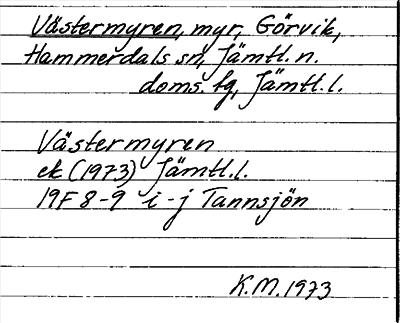 Västermyren, myr, Görvik,
Hammerdals sn, Jämtl. n.
doms. fg, Jämtl. l.
Västermyren
ek (1973) Jämtl. l.
19F 8-9 i-j Tannsjön
K.M. 1973